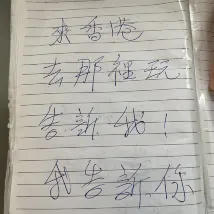 來香港
去那裡玩
告訴我！
我告訴你